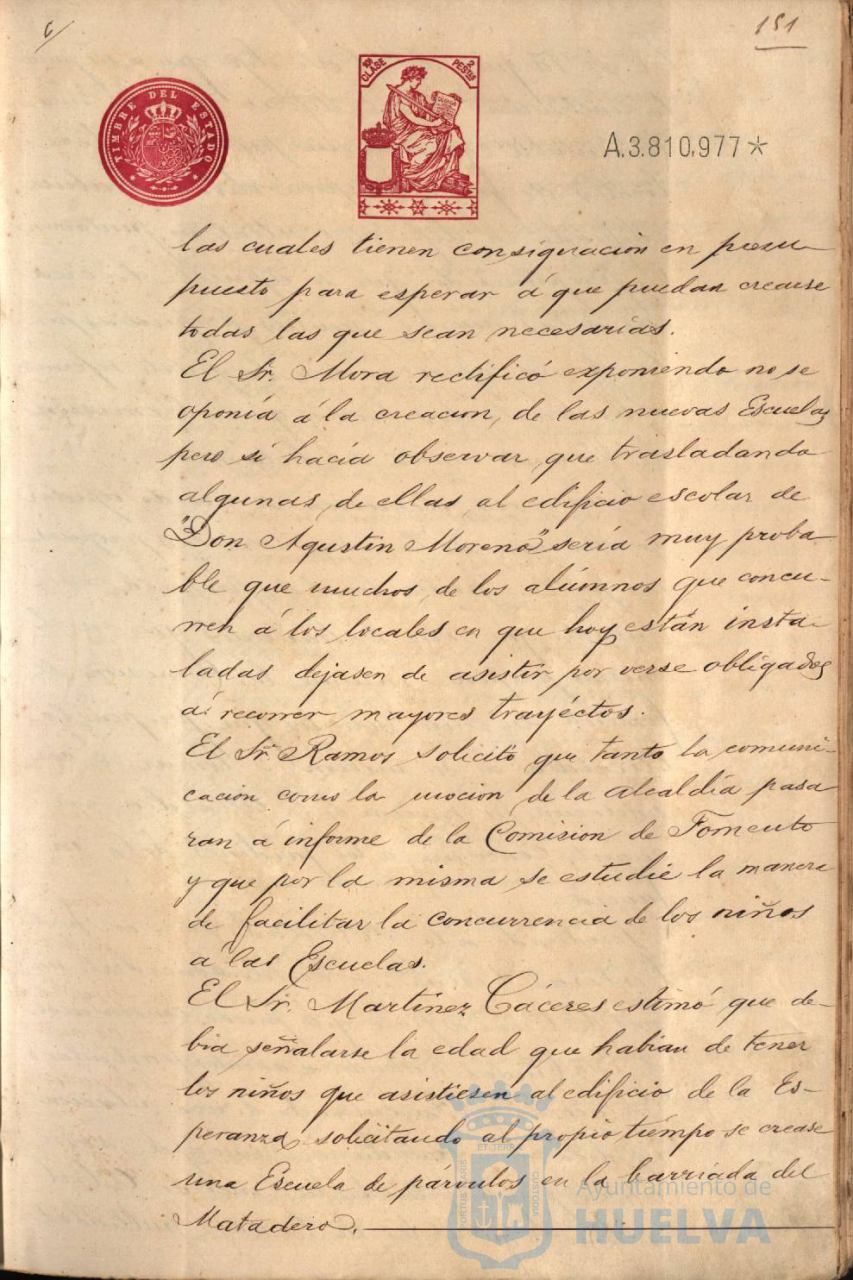 6/
151
TIMBRE DEL ESTADO
10ª CLASE 2 PESTAS
A.3.810,977*
las cuales tienen consignacion en presu
puesto para esperar á que puedan crearse
todas las que sean necesarias.
El Sr. Mora rectificó exponiendo no se
oponía á la creacion, de las nuevas Escuelas
pero si hacía observar que trasladando
algunas de ellas al edificio escolar de
"Don Agustin Moreno" sería muy proba-
ble que muchos de los alúmnos que concu-
rren á los locales en que hoy están insta-
ladas dejasen de asistir por verse obligados
á recorrer mayores trayéctos.
El Sr. Ramos solicitó que tanto la comuni-
cación como la mocion de la Alcaldía pasa
ran á informe de la Comision de Fomento
y que por la misma se estudie la manera
de facilitar la concurrencia de los niños
á las Escuelas.
El Sr. Martinez Cáceres estimó que de-
bia señalarse la edad que habian de tener
los niños que asistiesen al edificio de la Es-
peranza solicitando al propio tiempo se crease
una Escuela de párvulos en la barriada del
Matadero.
Ayuntamiento de
HUELVA